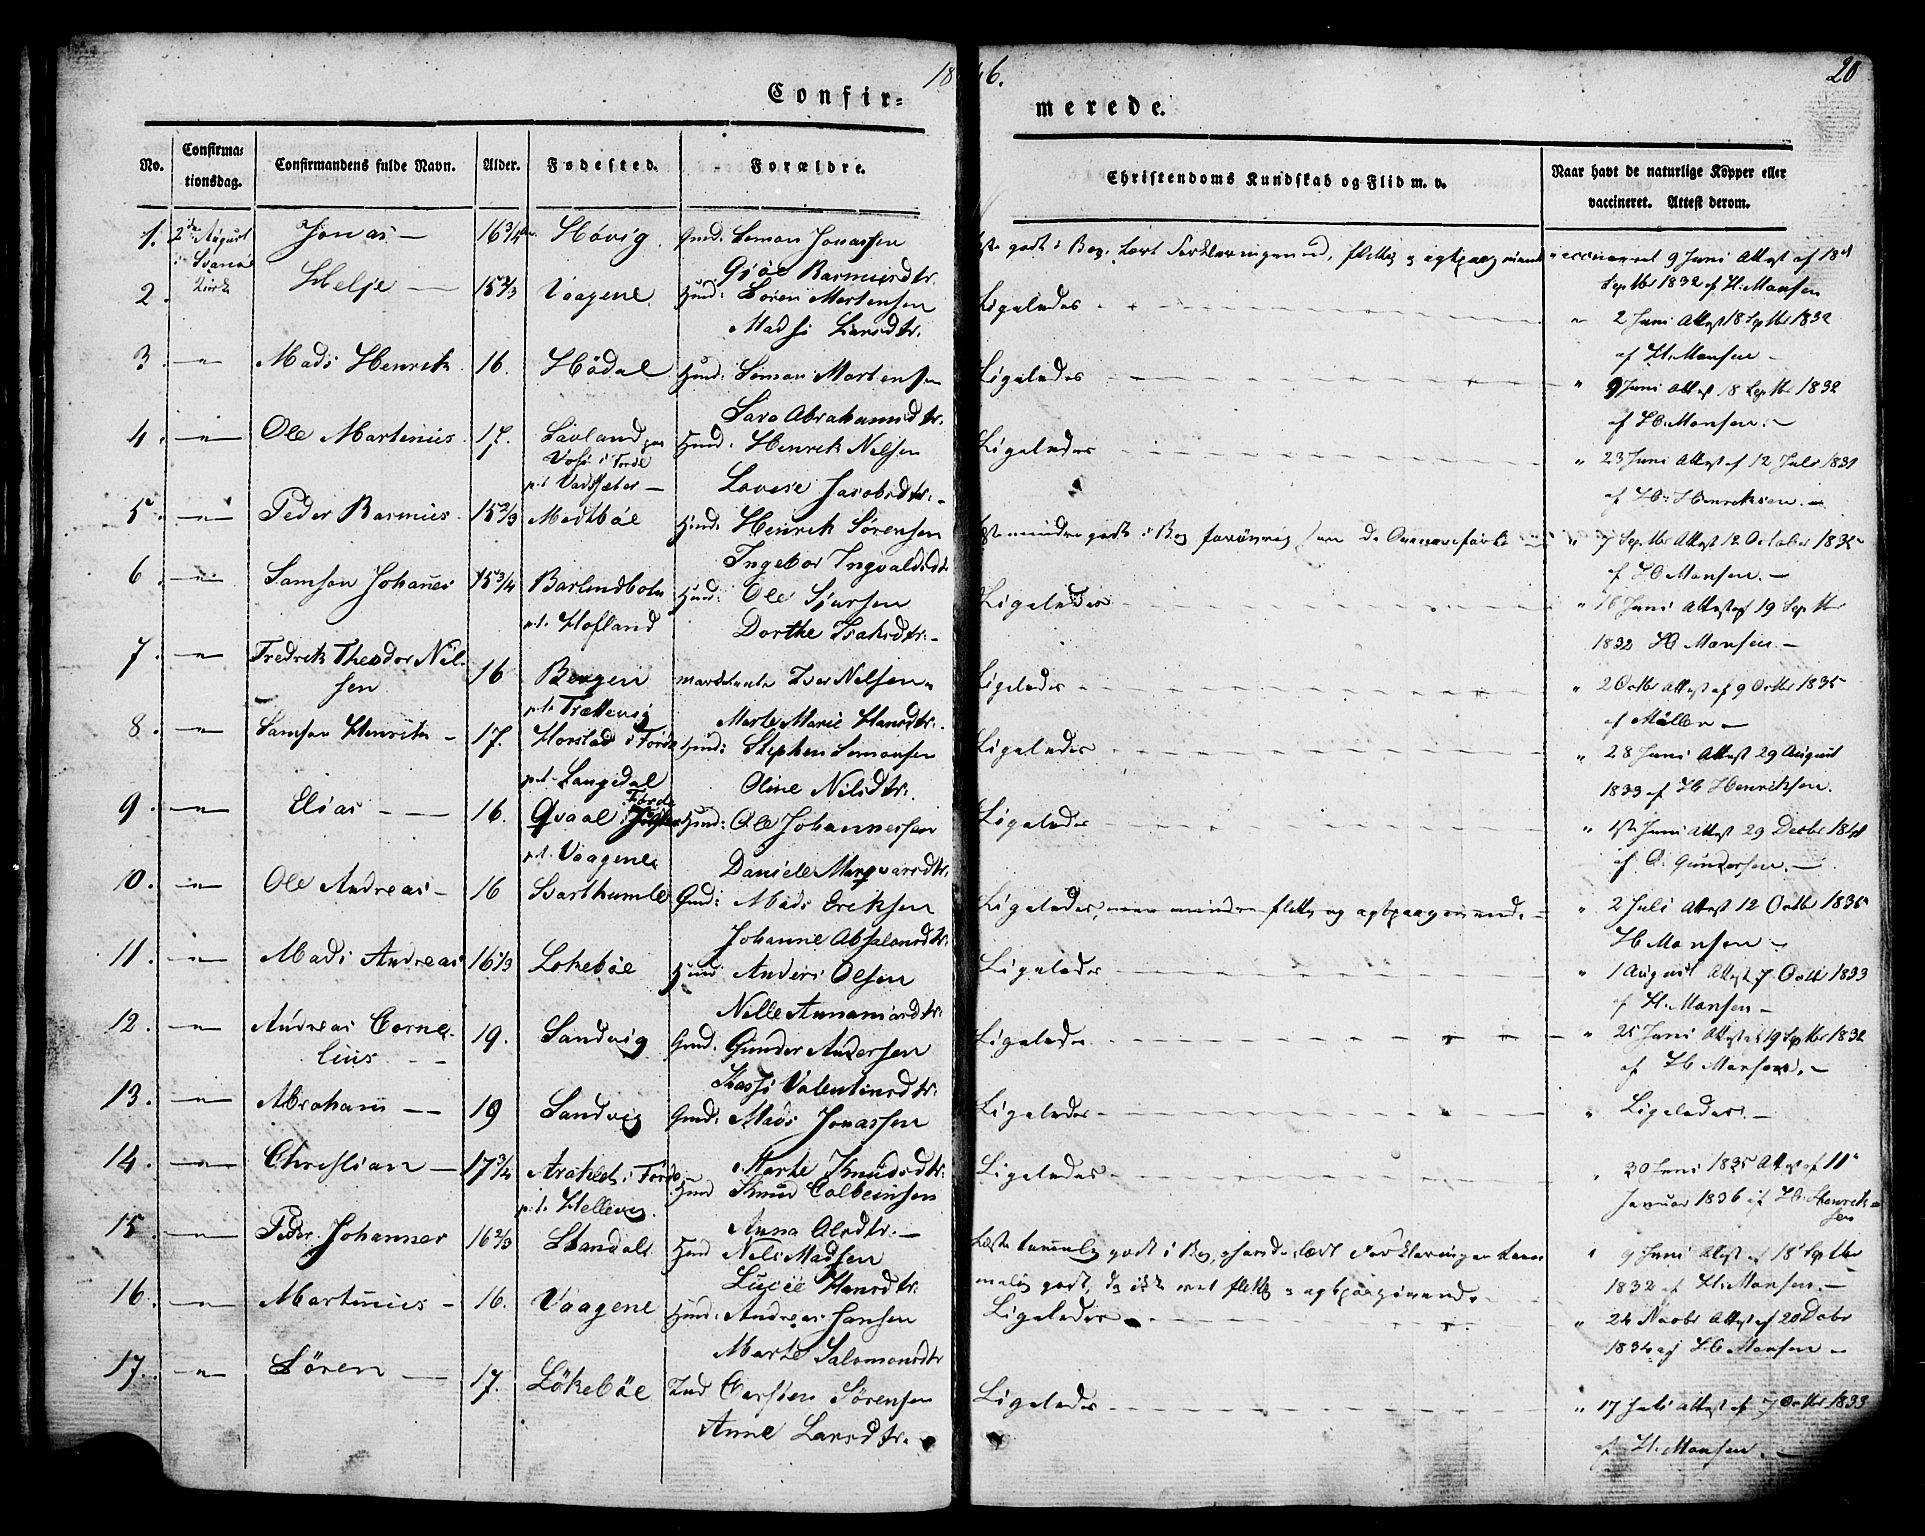 1846.
20
Confir-
merede.
No.
Confirma-
tionsdag.
Confirmandens fulde Navn.
Alder.
Fødested.
Forældre.
Christendoms Kundskab og Flid m. v.
Naar havt de naturlige Kopper eller
vaccineret. Attest derom.
1. 2den August Jonas — 16 3/4 Høvig. Gmd. Simon Jonassen
i Svanøe Kirk
Gjøe Rasmusdtr.
godt i Bog, lært Forklaringen ud, flittig og agtpaagivende
vaccineret 9 Juni Attest af 18de
Septbr 1832 af H. Monsen
2. Helje — 15 2/3 Vaagene. Huusmd: Søren Mortensen
Madsi Larsdtr.
Ligeledes
" 2 Juni Attest 18 Septbr 1832
af H. Monsen —
3. —"— Mads Henrik 16. Hødal Huusmd: Simon Mortensen
Sara Abrahamsdtr.
Ligeledes
" 9 Juni Attest 18 Septbr 1832
af H. Monsen. —
4. —"— Ole Martinus. 17. Løvland
i Førde
p.t. Vadsæter —
Huusmd: Henrik Nilsen
Lovise Jacobsdtr. —
Ligeledes
" 23 Juni Attest af 12 Juli 1831
af H: Henriksen. —
5. —"— Peder Rasmus. 15 2/3 Midtbøe Huusmd: Henrik Sørensen
Ingebor Ingvaldsdtr
mindre godt i Bog forøvrig som de Ovenanførte
" 7 Septbr Attest 12 October 1835
af H Monsen. —
6. —"— Samson Johanes 15 3/4 Barlindbotn
p.t. Hofland
Huusmd: Ole Sjursen
Dorthe Isaksdtr. —
Ligeledes
" 16 Juni Attest af 19 Septbr
1832 H Monsen. —
7. —"— Fredrik Theodor Nil-
sen
16 Bergen
p.t. Trættevig
Iver Nilsen
Marte Marie Hansdtr.
Ligeledes
" 2 Octbr Attest af 9 Octbr 1835
af Møller —
8. —"— Samson Henrik — 17. Horstad i Førde
p.t. Langedal
Huusmd: Stephen Simonsen
Oline Nilsdtr.
Ligeledes
" 28 Juni Attest 29 August
1833 af H Henriksen.
9. —"— Elias — 16. Qvaal i Førde
p.t. Vaagene
Huusmd: Ole Johannessen
Daniele Marqvarsdtr.
Ligeledes
" 1ste Juni Attest 29 Decbr
af A. Gundersen. —
10. —"— Ole Andreas — 16 Svarthumle Gmd: Mads Eriksen
Johanne Absalonsdtr.
Ligeledes, men mindre flittig og agtpaagivende.
" 2 Juli Attest 12 Octbr 1835
H Monsen —
11. —"— Mads Andreas 16 1/3 Løkebøe Huusmd Anders Olsen
Nille Ananiasdtr
Ligeledes
" 1 August Attest 7 Octbr 1833
af H. Monsen —
12. —"— Andreas Corne-
lius. —
19. Sandvig Gmd. Gunder Andersen
Kassi Valentinsdtr.
Ligeledes
" 25 Juni Attest 19 Septbr 1832
af H Monsen. —
13. —"— Abraham — 19 Sandvig Gmd: Mads Jonassen
Marte Knudsdtr.
Ligeledes
" Ligeledes. —
14. —"— Christian — 17 3/4 i Førde
p.t. Hellevig.
Huusmd Knud Colbeinsen
Anna Olsdtr. —
Ligeledes
" 30 Juni 1835 Attest af 11te
Januar 1836 af H. Henrik-
sen
15. —"— Peder Johannes 16 2/3 Standal Huusmd Nils Madsen
Lucie Hansdtr.
Læste temmelig godt i Bog, havde lært Forklaringen tem-
melig godt, og ikke ret flittig og agtpaagivende.
" 9 Juni Attest af 18 Septbr
1832 af H. Monsen. —
16. —"— Martinus — 16. Vaagene Huusmd: Andreas Hansen
Marte Salomonsdtr
Ligeledes
" 24 Novbr Attest af 20 Decbr
1834 af H Monsen —
17. —"— Søren — 17. Løkebøe Ind Carsten Sørensen
Anne Larsdtr.
Ligeledes
" 17 Juli Attest af 7 Octbr 1833
af H. Monsen. —